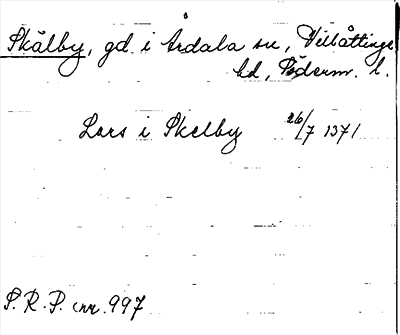 Skälby, gd. i Årdala sn, Villåttinge
hd, Söderm. l.
Lars i Skelby 26/7 1371
S.R.P. nr 997